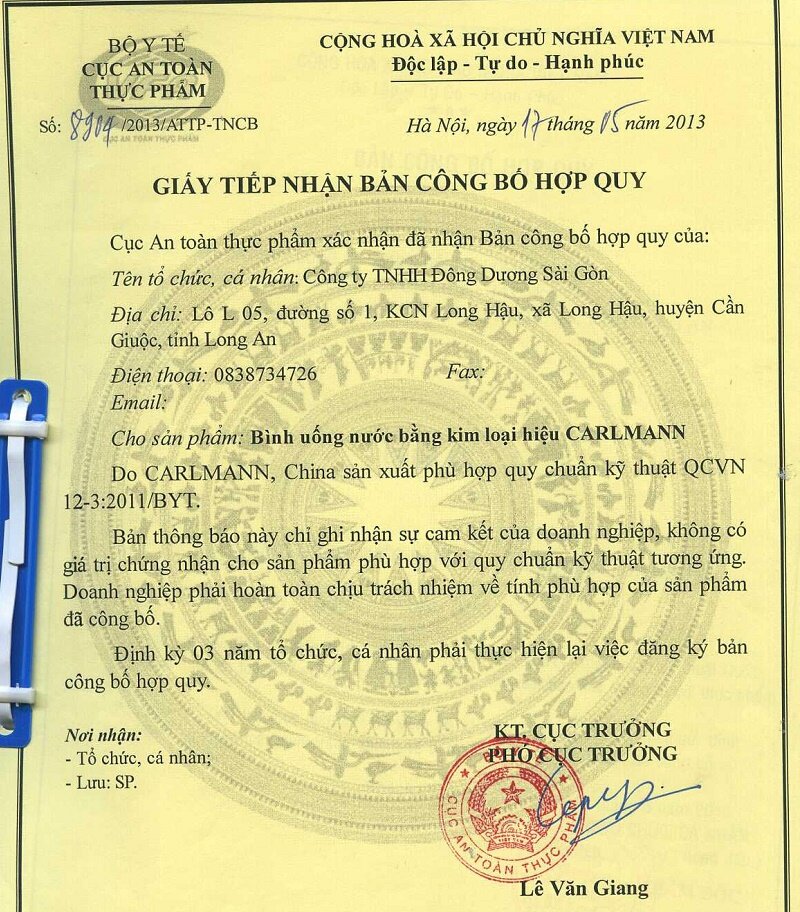 BỘ Y TẾ
CỤC AN TOÀN
THỰC PHẨM
Số: 8904 /2013/ATTP-TNCB
CỤC AN TOÀN THỰC PHẨM
CỘNG HOÀ XÃ HỘI CHỦ NGHĨA VIỆT NAM
Độc lập - Tự do - Hạnh phúc
Hà Nội, ngày 17 tháng 05 năm 2013
GIẤY TIẾP NHẬN BẢN CÔNG BỐ HỢP QUY
Cục An toàn thực phẩm xác nhận đã nhận Bản công bố hợp quy của:
Tên tổ chức, cá nhân: Công ty TNHH Đông Dương Sài Gòn
Địa chỉ: Lô L 05, đường số 1, KCN Long Hậu, xã Long Hậu, huyện Cần
Giuộc, tỉnh Long An
Điện thoại: 0838734726 Fax:
Email:
Cho sản phẩm: Bình uống nước bằng kim loại hiệu CARLMANN
Do CARLMANN, China sản xuất phù hợp quy chuẩn kỹ thuật QCVN
12-3:2011/BYT.
Bản thông báo này chỉ ghi nhận sự cam kết của doanh nghiệp, không có
giá trị chứng nhận cho sản phẩm phù hợp với quy chuẩn kỹ thuật tương ứng.
Doanh nghiệp phải hoàn toàn chịu trách nhiệm về tính phù hợp của sản phẩm
đã công bố.
Định kỳ 03 năm tổ chức, cá nhân phải thực hiện lại việc đăng ký bản
công bố hợp quy.
Nơi nhận:
- Tổ chức, cá nhân;
- Lưu: SP.
KT. CỤC TRƯỞNG
PHÓ CỤC TRƯỞNG
CỤC AN TOÀN THỰC PHẨM
Lê Văn Giang